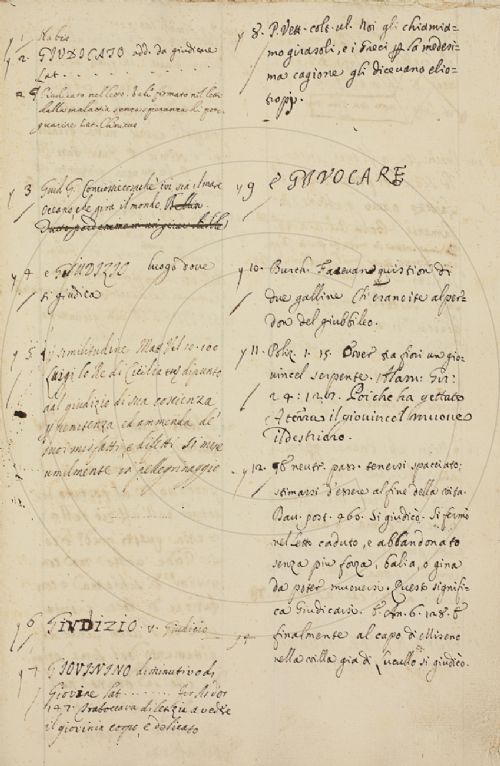 γ 1
γ 2. GIUDICATO add. da giudicare
Lat. . . . . . . . . . .
Giudicato nel letto. Vale fermato nel letto
dalla malattia senza speranza di per
guarire Lat. Clinicus
γ 3 Guid. G. che ivi sia il mare
Oceano, che gira il mondo.
γ 4 e GIUDIZIO luogo dove
si giudica
γ 5 similitudine Matt. Vil. 10. 100
Luigi lo Re di Cicilia essendo punto
dal giudizio di sua coscienza
penitenza, ed ammenda de'
suoi misfatti e difetti. Si mise
umilmente in pellegrinaggio
γ 6 GIVDIZIO v. Giudizio
γ 7 GIOVININO diminutivo di
Giovine Lat . . . . . . . .
147. Traboccava di letizia a vedere
il giovinin corpo, e delicato
γ 8. P. Vett. colt. ul. Noi gli chiamia=
mo girasoli, e i Greci per la medesi=
ma cagione gli dicevano elio=
tropj.
γ 9 e GIVOCARE
γ 10. Burch. Facevan quistion di
due galline Ch'erano ite al per=
don del giubbileo.
γ 11. Poliz. 1. 15. Ov'er sta fiori un gio=
vincel serpente. Alam. Gir:
24: 127. Poi che ha gettato
a terra il giovincel muove
Il destriero.
γ 12. neutr. pass. tenersi spacciato;
stimarsi d'essere al fine della vita.
Dav. post. 460. Si giudicò. Si fermò
nel letto caduto, e abbandonato
senza piu forza, balìa, o gina
da poter muoversi. Questo signifi=
ca Giudicarsi. E An. 6. 128. E
finalmente al capo di Miseno
nella villa già di Lucullo si giudicò.